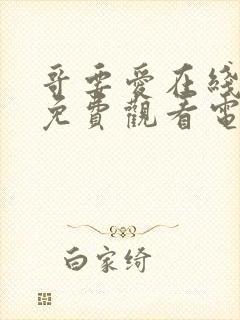 哥要愛在綫
免費觀看電
白家绮